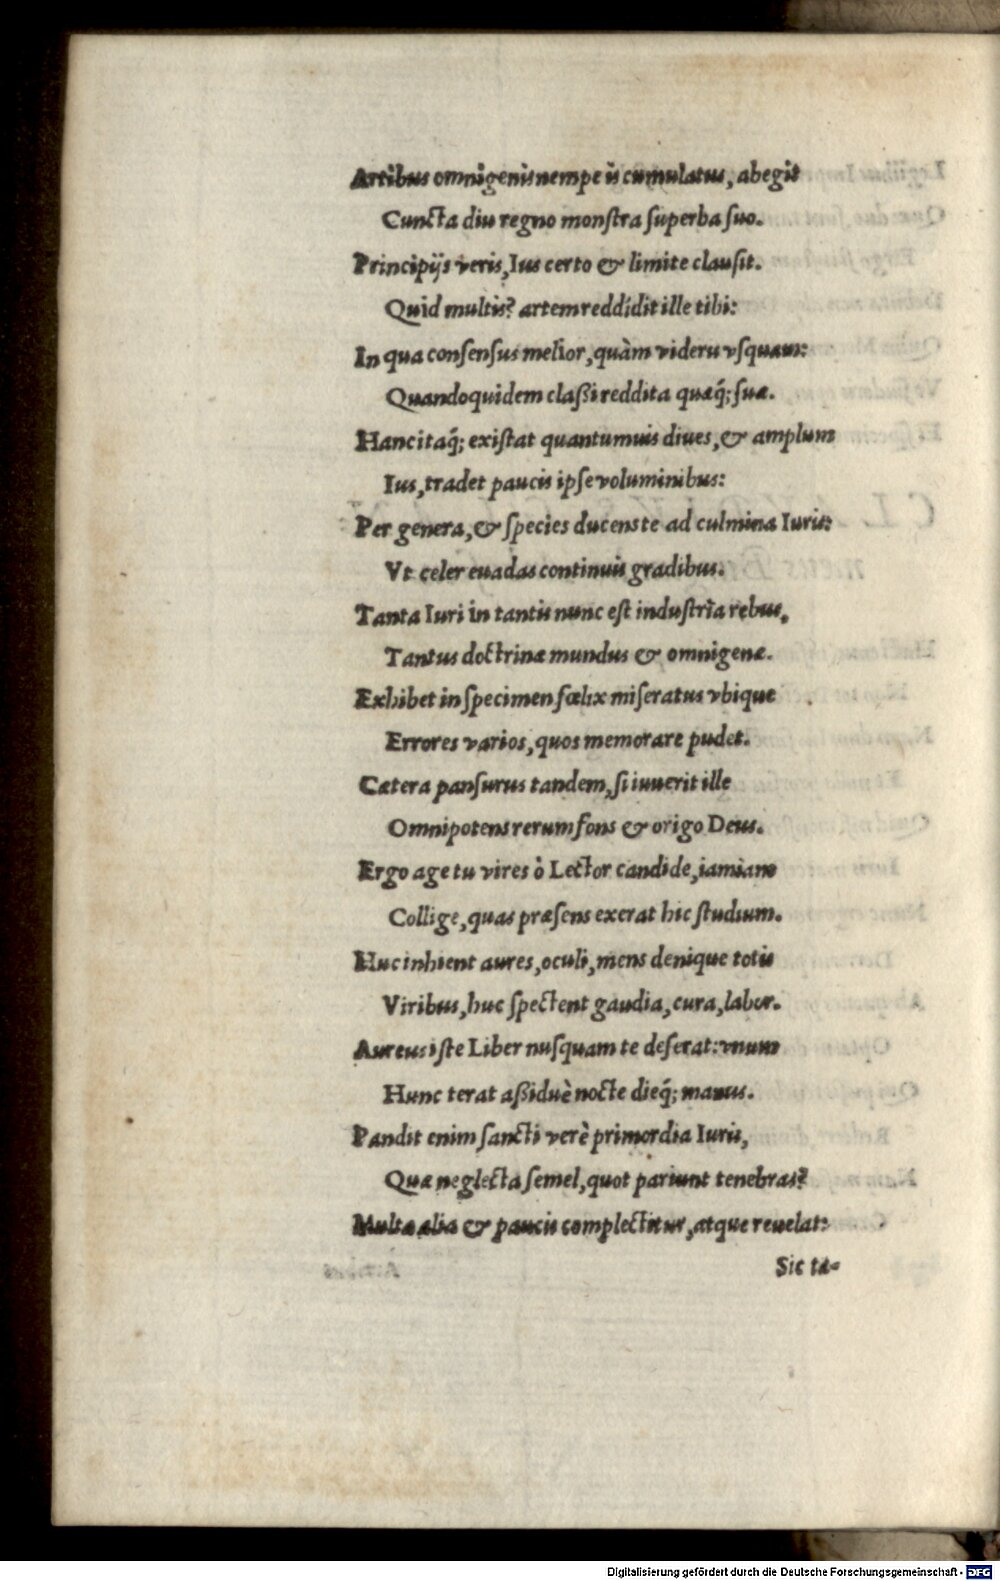 Artibus omnigenis nempe is cumulatus, abegit
Cuncta diu regno monſtra ſuperba ſuo.
Principijs veris, Ius certo & limite clauſit.
Quid multis? artem reddidit ille tibi:
In qua conſenſus melior, quàm videru vſquam:
Quandoquidem claßi reddita quæq́; ſuæ.
Hanc itaq́; exiſtat quantumuis diues, & amplum
Ius, tradet paucis ipſe voluminibus:
Per genera, & ſpecies ducens te ad culmina Iuris:
Vt celer euadas continuis gradibus.
Tanta Iuri in tantis nunc eſt induſtria rebus,
Tantus doctrinæ mundus & omnigenæ.
Exhibet in ſpecimen fœlix miſeratus vbique
Errores varios, quos memorare pudet.
Cætera panſurus tandem, ſi iuuerit ille
Omnipotens rerum fons & origo Deus.
Ergo age tu vires ô Lector candide, iamiam
Collige, quas præſens exerat hic ſtudium.
Huc inhient aures, oculi, mens denique totis
Viribus, huc ſpectent gaudia, cura, labor.
Aureus iſte Liber nuſquam te deſerat: vnum
Hunc terat aßiduè nocte dieq́; manus.
Pandit enim ſancti verè primordia Iuris,
Quæ neglecta ſemel, quot pariunt tenebras?
Multa alia & paucis complectitur, atque reuelat:
Sic ta-
Digitalisierung gefördert durch die Deutsche Forschungsgemeinschaft - DFG